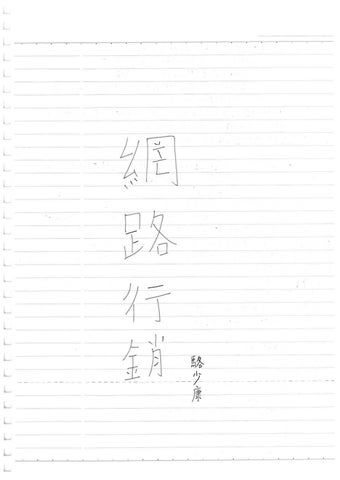 網路行銷
駱少康